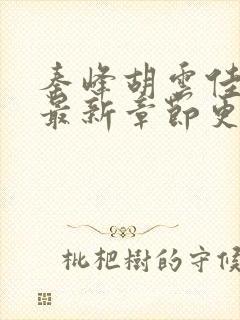 秦峰胡雲佳
最新章節更
枇杷樹的守候